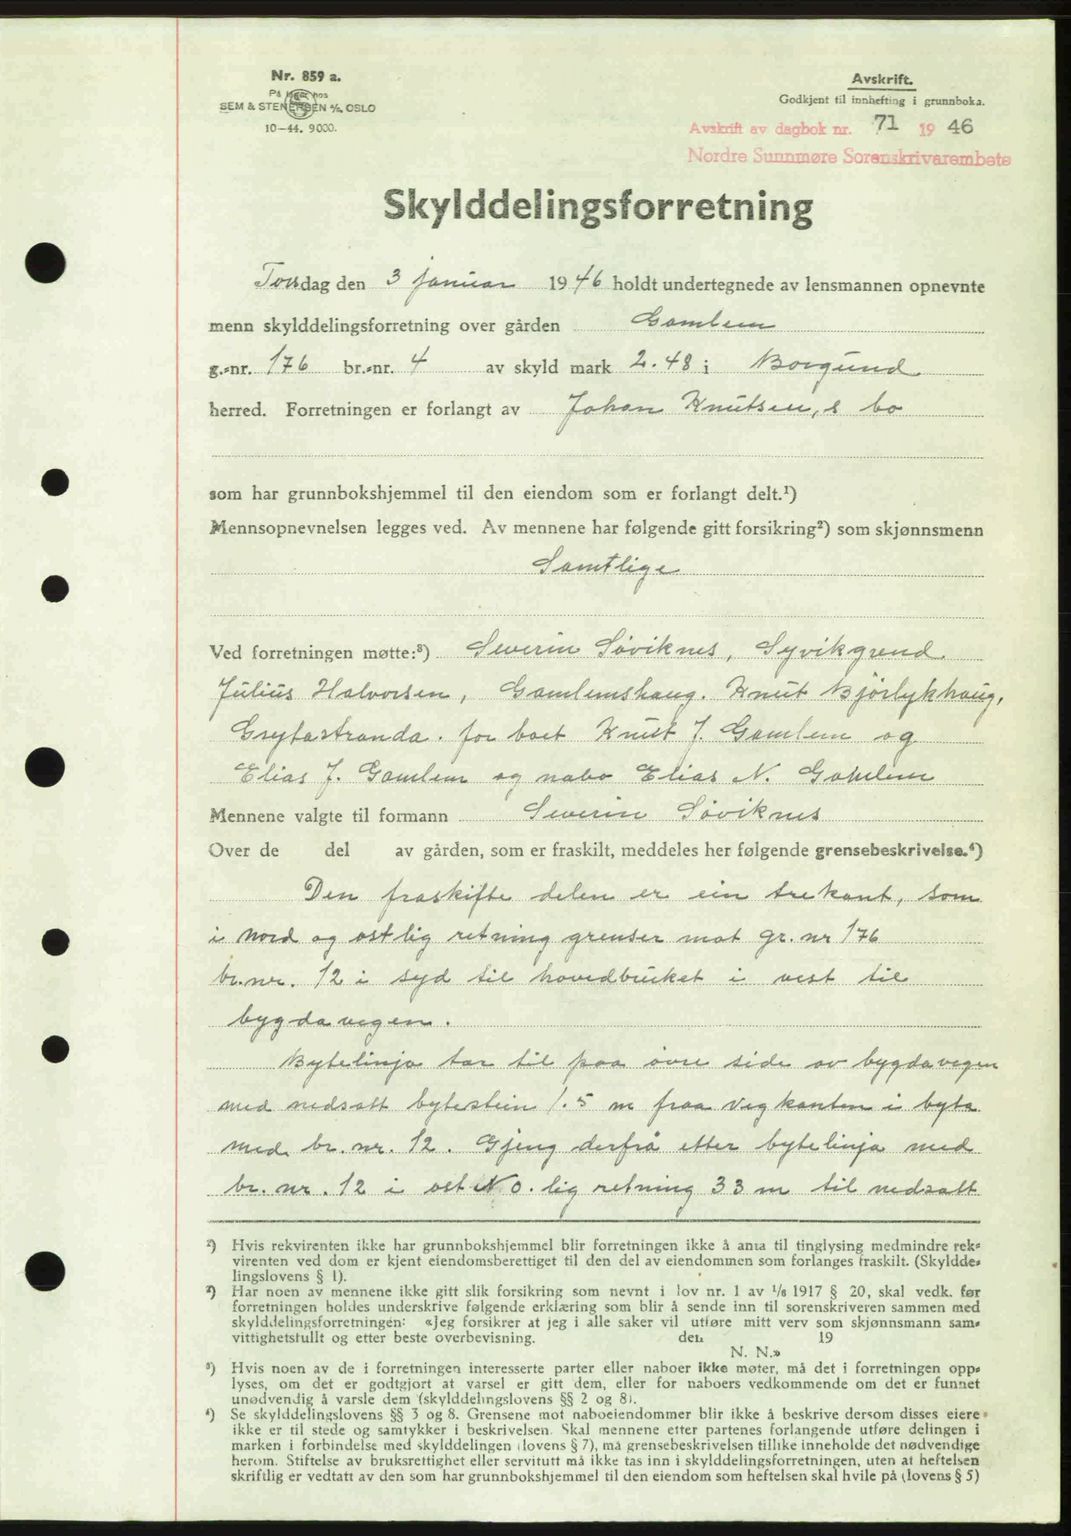 Nr. 859 a.
På lager hos
SEM & STENERSEN A/S, OSLO
10-44. 9000.
Avskrift.
Godkjent til innhefting i grunnboka.
Avskrift av dagbok nr. 71 1946
Nordre Sunnmøre Sorenskrivarembete
Skylddelingsforretning
Torsdag den 3 januar 1946 holdt undertegnede av lensmannen opnevnte
menn skylddelingsforretning over gården Gamlem
g.-nr. 176 br.-nr. 4 av skyld mark 2.48 i Borgund
herred. Forretningen er forlangt av Johan Knutsen,s bo
som har grunnbokshjemmel til den eiendom som er forlangt delt.¹)
Mennsopnevnelsen legges ved. Av mennene har følgende gitt forsikring²) som skjønnsmenn
Samtlige
Ved forretningen møtte:³) Severin Söviknes, Syvikgrend
Julius Halvorsen, Gamlemshaug. Knut Bjørlykhaug,
Grytastranda. for boet Knut J. Gamlem og
Elias J. Gamlem og nabo Elias N. Gamlem
Mennene valgte til formann Severin Söviknes
Over de del av gården, som er fraskilt, meddeles her følgende grensebeskrivelse.⁴)
Den fraskifte delen er ein trekant, som
i nord og ostlig retning grenser mot gr. nr 176
br. nr. 12 i syd til hovedbruket i vest til
bygdavegen.
Bytelinja tar til paa övre side av bygdavegen
med nedsatt bytestein 1.5 m fraa vegkanten i byte
med br. nr. 12. Gjeng derfrå etter bytelinja med
br. nr. 12 i ost N O. lig retning 33 m til nedsatt
¹) Hvis rekvirenten ikke har grunnbokshjemmel blir forretningen ikke å anta til tinglysing medmindre rek-
virenten ved dom er kjent eiendomsberettiget til den del av eiendommen som forlanges fraskilt. (Skyldde-
lingslovens § 1).
²) Har noen av mennene ikke gitt slik forsikring som nevnt i lov nr. 1 av 1/6 1917 § 20, skal vedk. før
forretningen holdes underskrive følgende erklæring som blir å sende inn til sorenskriveren sammen med
skylddelingsforretningen: «Jeg forsikrer at jeg i alle saker vil utføre mitt verv som skjønnsmann sam-
vittighetsfullt og etter beste overbevisning. den 19
N. N.»
³) Hvis noen av de i forretningen interesserte parter eller naboer ikke møter, må det i forretningen opp-
lyses, om det er godtgjort at varsel er gitt dem, eller for naboers vedkommende om det er funnet
unødvendig å varsle dem (skylddelingslovens §§ 2 og 8).
⁴) Se skylddelingslovens §§ 3 og 8. Grensene mot naboeiendommer blir ikke å beskrive dersom disses eiere
ikke er til stede og samtykker i beskrivelsen. Skal mennene etter partenes forlangende utføre delingen i
marken i forbindelse med skylddelingen (lovens § 7), må grensebeskrivelsen tillike inneholde det nødvendige
herom. Stiftelse av bruksrettighet eller servitutt må ikke tas inn i skylddelingsforretningen, uten at heftelsen
skriftlig er vedtatt av den som har grunnbokshjemmel til den eiendom som heftelsen skal hvile på (lovens § 5)